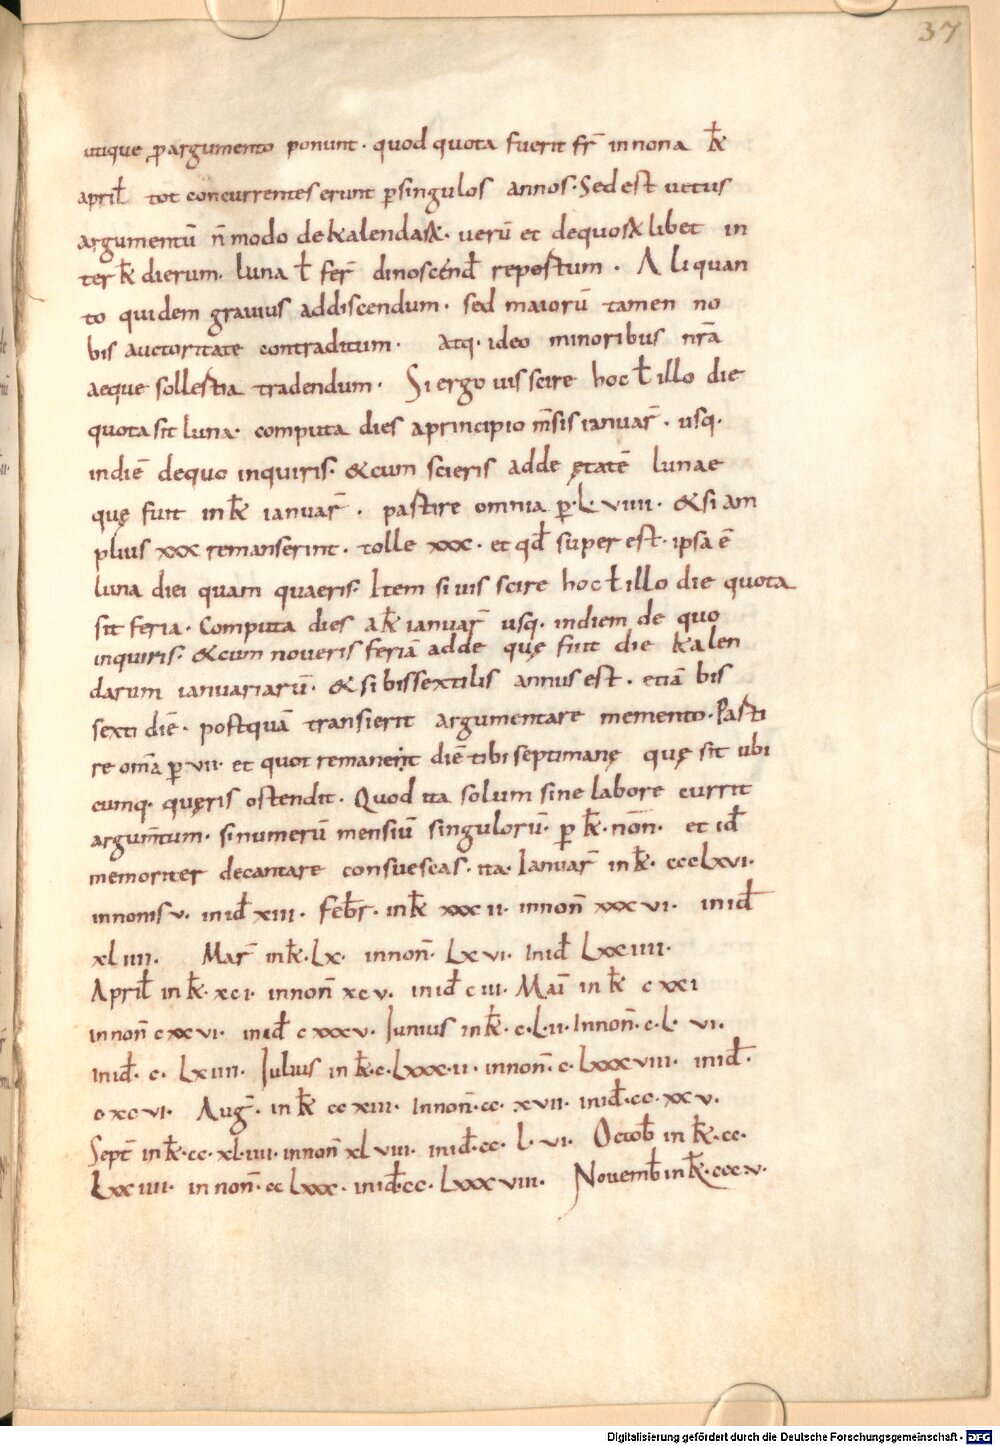 37
utique ꝓargumento ponunt · quod quota fuerit fr̄ innona k̄
april̄ tot concurrentes erunt ꝑsingulos annos · Sed est uetus
argumentū n̄ modo dekalendaꝝ · uerū et dequoꝝ libet in
ter k̄ dierum · luna ł fer̄ dinoscend̄ repostum · Aliquan
to quidem grauius addiscendum · sed maiorū tamen no
bis auctoritate contraditum · Atq· ideo minoribus nr̄a
aeque sollestia tradendum · Si ergo uis scire hoc ł illo die
quota sit luna · computa dies aprincipio m̄sis ianuar̄ · usq·
indiē dequo inquiris · &cum scieris adde ętatē lunae
quę fuit ink̄ ianuar̄ · pastire omnia ꝑ·L·viiii · &si am
plius xxx remanserint · tolle xxx · et qd̄ super est · ipsa ē
luna diei quam quaeris · Item si uis scire hoc ł illo die quota
sit feria · Computa dies ak̄ ianuar̄ usq· indiem de quo
inquiris · &cum noueris feriā adde quę fuit die kalen
darum ianuariarū · &si bissextilis annus est · etiā bis
sexti diē · postquā transierit argumentare memento · Parti
re om̄a ꝑ vii · et quot remanent diē tibi septimanę quę sit ubi
cumq· quęris ostendit · Quod ita solum sine labore currit
argum̄tum · si numerū mensiū singulorū · ꝑ k̄ · nōn · et id̄
memoriter decantare consuescas · ita · Ianuar̄ in k̄ · ccclxvi ·
innonis v · in id̄ xiii · feb̄r · ink̄ xxxii · innon̄ xxxvi · inid̄
xliiii · Mar̄ ink̄ · Lx · innon̄ · Lxvi · Inid̄ Lxxiiii ·
April̄ in k̄ · xci · innon̄ xcv · inid̄ ciii · Maī in k̄ cxxi
innon̄ cxxvi · inid̄ cxxxv · Iunius ink̄ · c·L·ii · Innon̄ · c·L·vi ·
Inid̄ · c·Lxiiii · Iulius in k̄ · c·Lxxx·ii · innon̄ · c·Lxxxviii · inid̄ ·
cxcvi · Auḡ · in k̄ ccxiii · Innon̄ · cc·xvii · inid̄ · cc·xxv ·
Sept̄ in k̄ · cc·xl·iiii · innon̄ xlviii · inid̄ · cc·L·vi · Octob̄ in k̄ · cc·
Lxxiiii · in non̄ · cc Lxxx · inid̄ · cc·Lxxxviii · Nouemb̄ ink̄ · ccc·v·
Digitalisierung gefördert durch die Deutsche Forschungsgemeinschaft - DFG